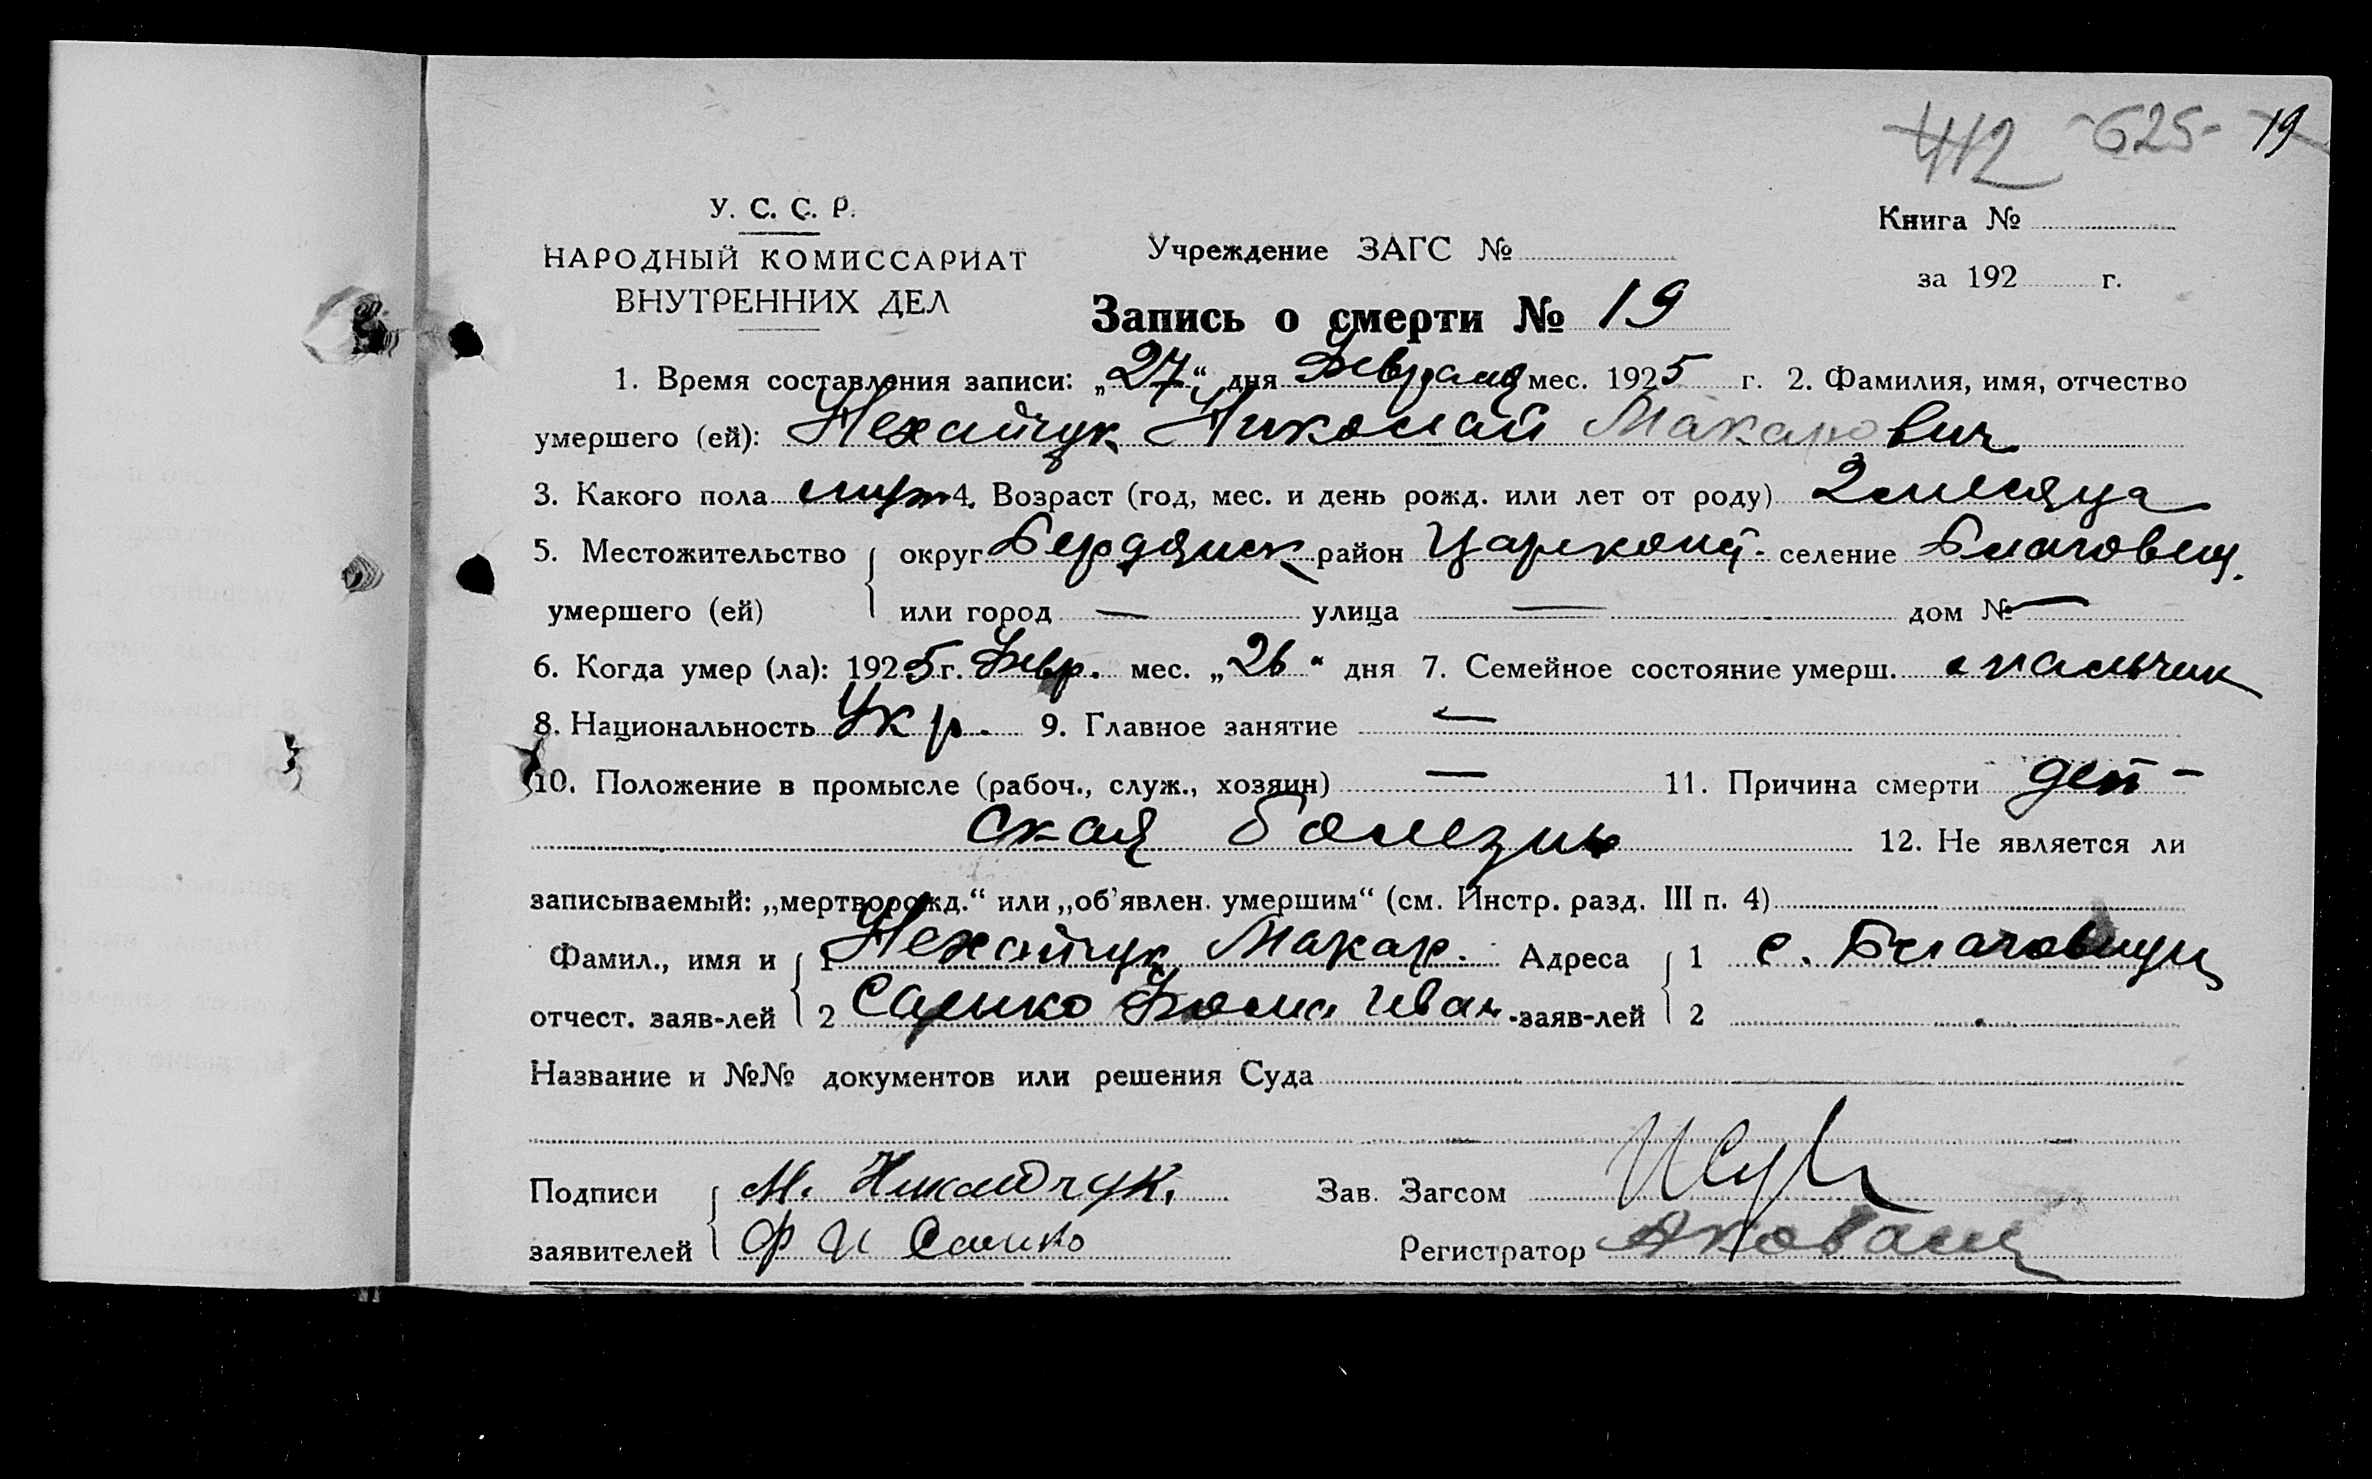 412 -625- 19
У. С. С. Р.
НАРОДНЫЙ КОМИССАРИАТ
ВНУТРЕННИХ ДЕЛ
Учреждение ЗАГС №
Книга №
за 192 г.
Запись о смерти № 19
1. Время составления записи: „27“ дня Февраля мес. 1925 г. 2. Фамилия, имя, отчество
умершего (ей): Нехайчук Николай Макарович
3. Какого пола муж 4. Возраст (год, мес. и день рожд. или лет от роду) 2 месяца
5. Местожительство округ Бердянск район Царекон. селение Благовещ.
умершего (ей) или город — улица — дом № —
6. Когда умер (ла): 1925 г. Февр. мес. „26“ дня 7. Семейное состояние умерш. мальчик
8. Национальность Укр. 9. Главное занятие —
10. Положение в промысле (рабоч., служ., хозяин) — 11. Причина смерти дет-
ская болезнь 12. Не является ли
записываемый: „мертворожд.“ или „об'явлен. умершим“ (см. Инстр. разд. III п. 4)
Фамил., имя и 1 Нехайчук Макар. Адреса 1 с. Благовещ
отчест. заяв-лей 2 Саенко Фома Иван. заяв-лей 2
Название и №№ документов или решения Суда
Подписи М. Зав. Загсом
заявителей Ф И Саенко Регистратор